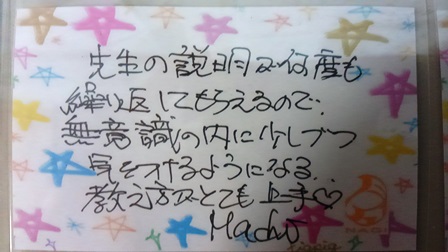 先生の説明が何度も
繰り返してもらえるので、
無意識の内に少しづつ
身をつけるようになる。
教え方がとても上手♡
Macho
NAGI